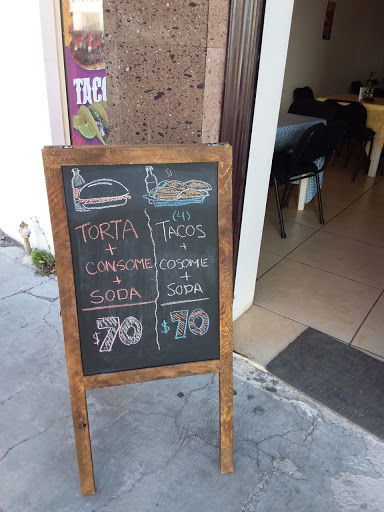 TACO
TORTA
+
CONSOME
+
SODA
$70
(4)
TACOS
+
COSOMIE
+
SODA
$70